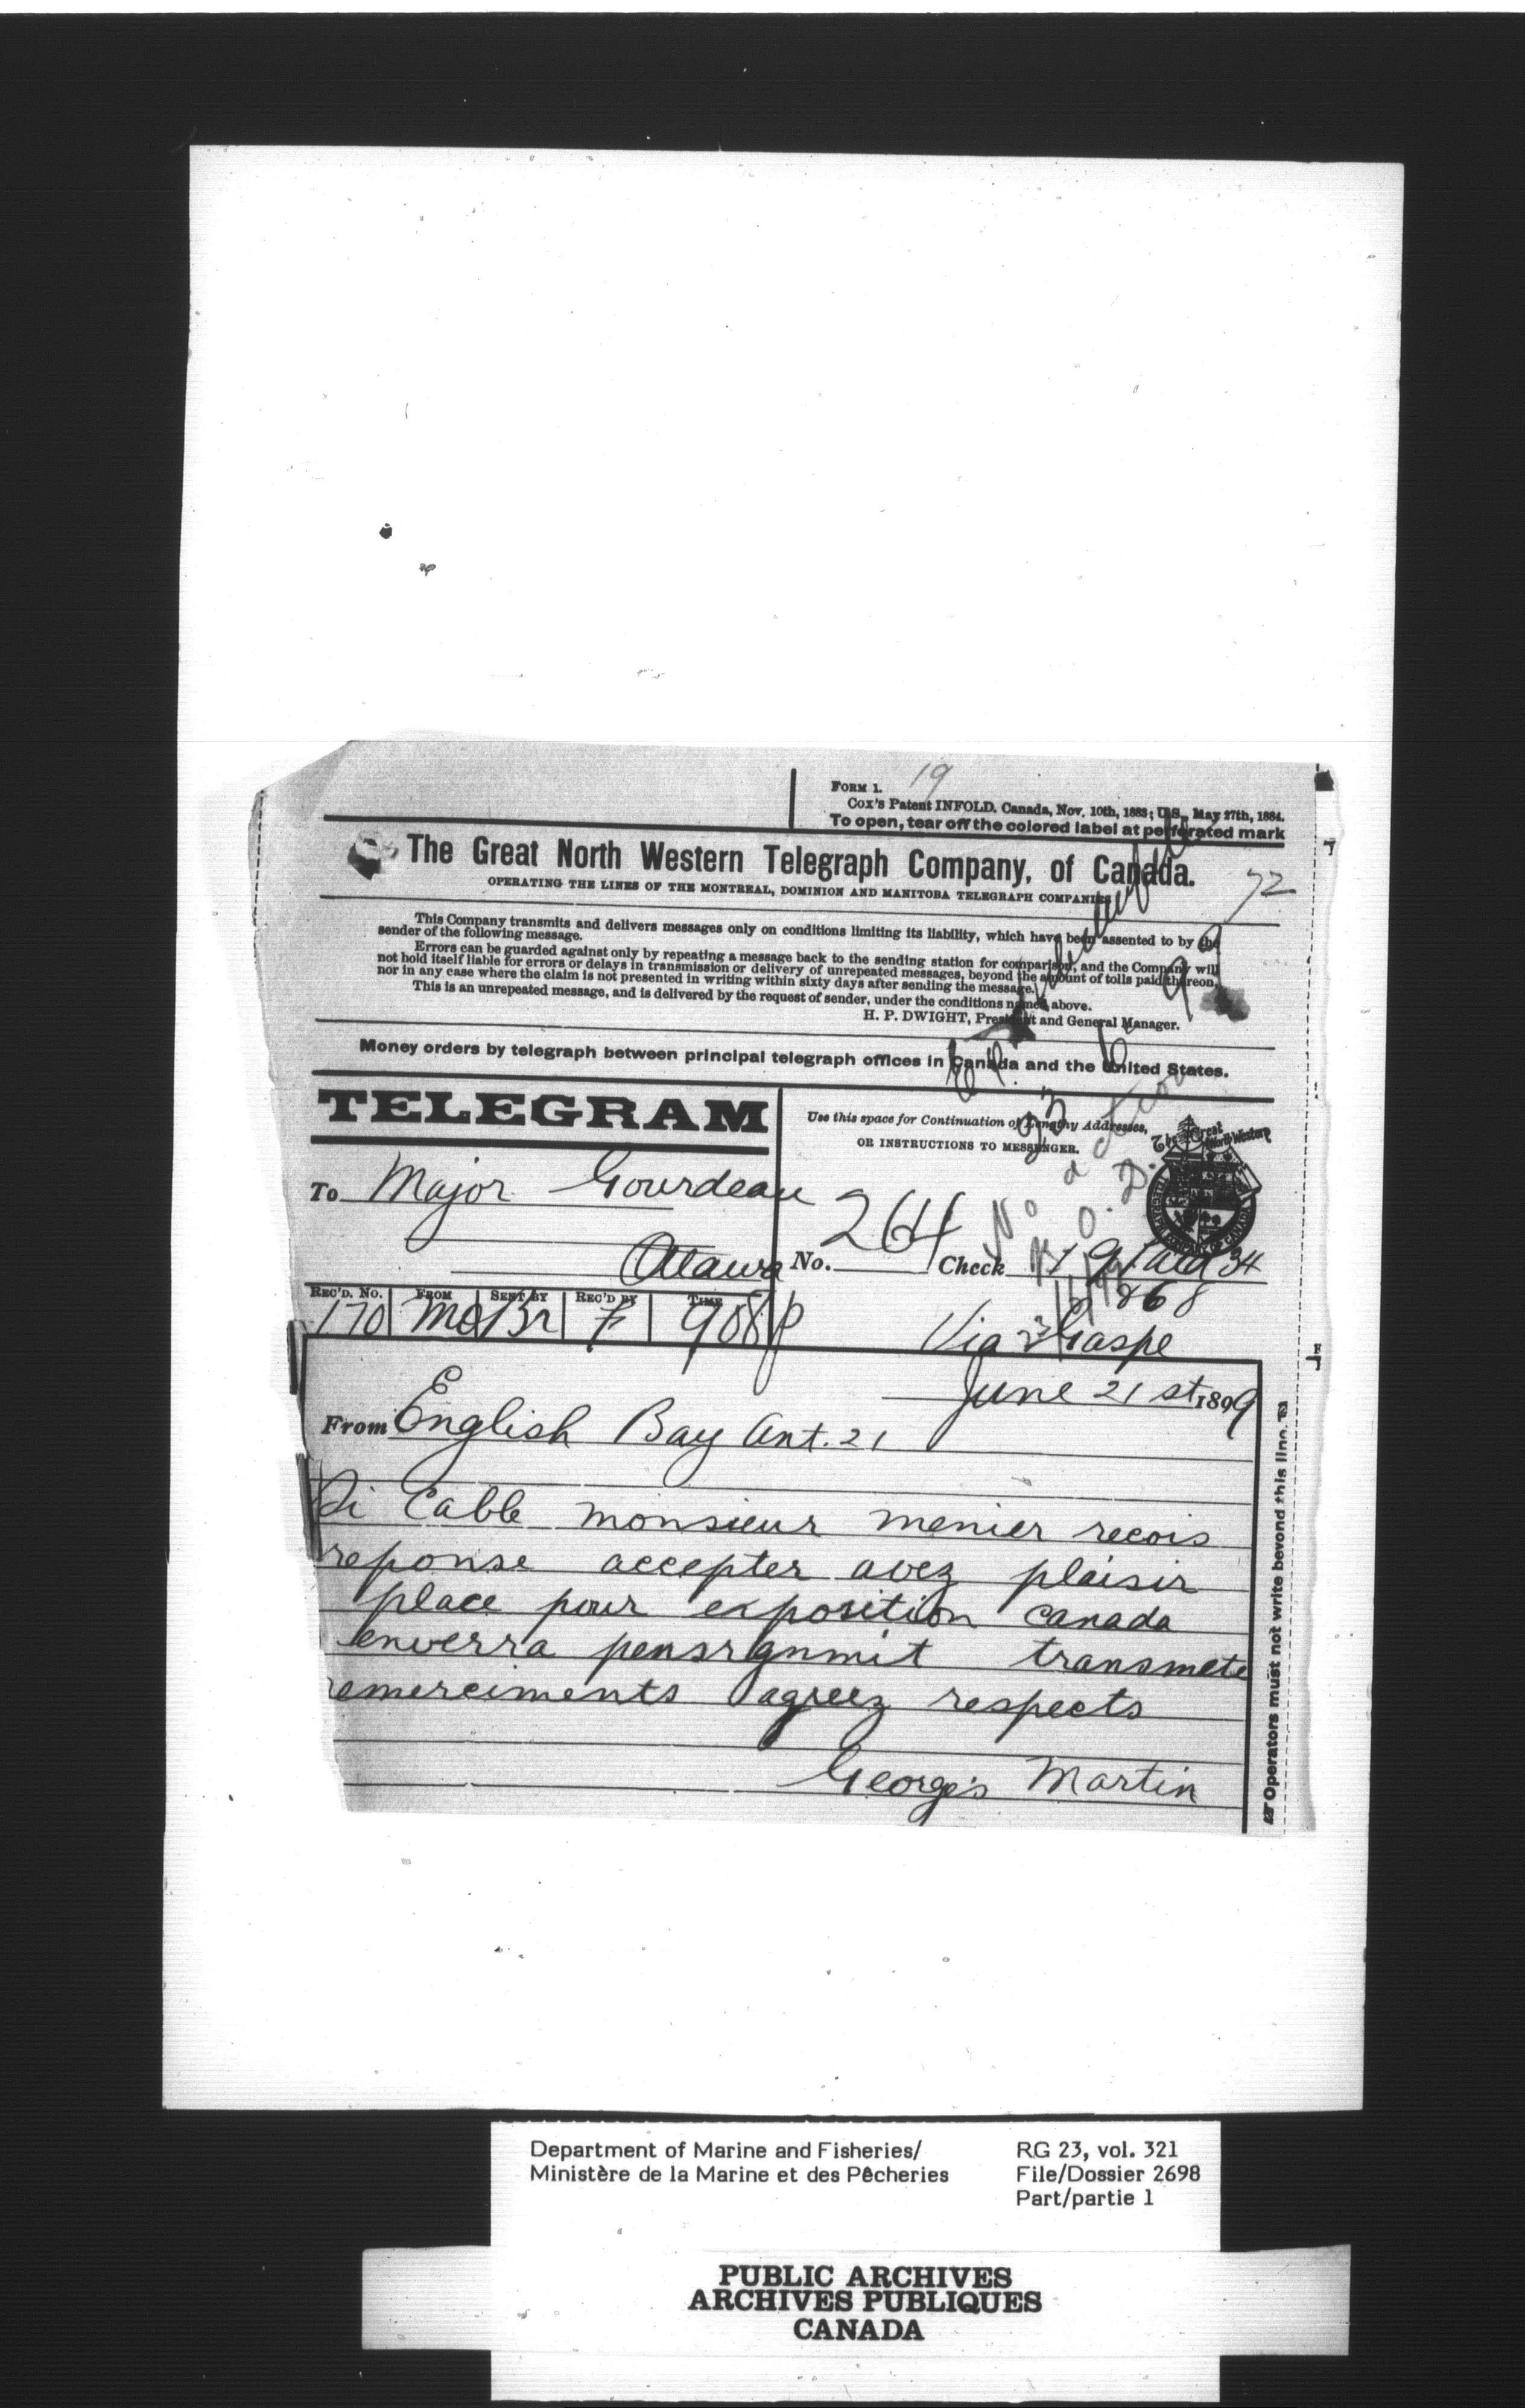 19
FORM 1.
Cox's Patent INFOLD. Canada, Nov. 10th, 1883; U.S., May 27th, 1884.
To open, tear off the colored label at perforated mark
The Great North Western Telegraph Company, of Canada.
72
OPERATING THE LINES OF THE MONTREAL, DOMINION AND MANITOBA TELEGRAPH COMPANIES
This Company transmits and delivers messages only on conditions limiting its liability, which have been assented to by the
sender of the following message.
Errors can be guarded against only by repeating a message back to the sending station for comparison, and the Company will
not hold itself liable for errors or delays in transmission or delivery of unrepeated messages, beyond the amount of tolls paid thereon,
nor in any case where the claim is not presented in writing within sixty days after sending the message.
This is an unrepeated message, and is delivered by the request of sender, under the conditions named above.
H. P. DWIGHT, President and General Manager.
Money orders by telegraph between principal telegraph offices in Canada and the United States.
TELEGRAM
Use this space for Continuation of Lengthy Addresses,
OR INSTRUCTIONS TO MESSENGER.
The Great North Western
To Major Gourdeau
Otawa
No. 264 Check
34
868
REC'D. No. FROM SENT BY REC'D BY TIME
170 Mo Bn F 908 P
Via Gaspe
June 21 st 1899
From English Bay Ant. 21
Si Cable monsieur menier recois
reponse accepter avez plaisir
place pour exposition canada
enverra pensrgnmit transmete
remerciments agreez respects
George's Martin
Operators must not write beyond this line.
Department of Marine and Fisheries/
Ministère de la Marine et des Pêcheries
RG 23, vol. 321
File/Dossier 2698
Part/partie 1
PUBLIC ARCHIVES
ARCHIVES PUBLIQUES
CANADA